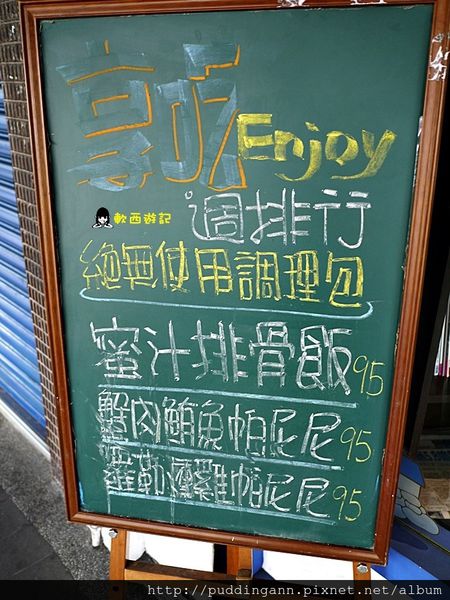 享吃Enjoy
軟西遊記
週排行
絕無使用調理包
蜜汁排骨飯95
蟹肉鮪魚帕尼尼95
羅勒燻雞帕尼尼95
http://puddingann.pixnet.net/album